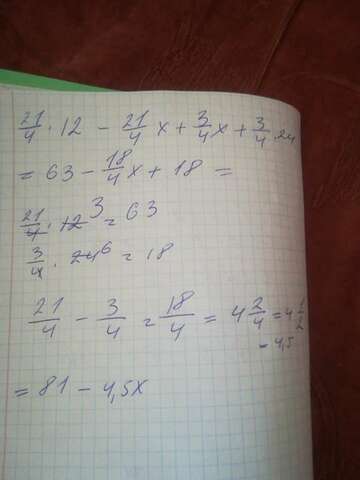 21/4 · 12 - 21/4 x + 3/4 x + 3/4 · 24
= 63 - 18/4 x + 18 =
21/4 · 12 3 = 63
3/4 · 24 6 = 18
21/4 - 3/4 = 18/4 = 4 2/4 = 4 1/2
= 4,5
= 81 - 4,5x